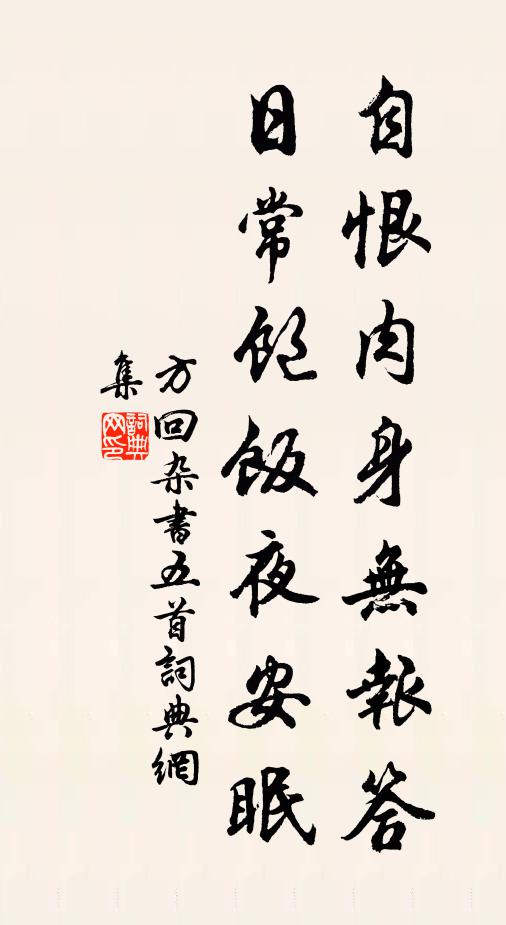 自恨肉身無報答
日常飽飯夜安眠
方回杂書五首詞典網
集
詞典
网印